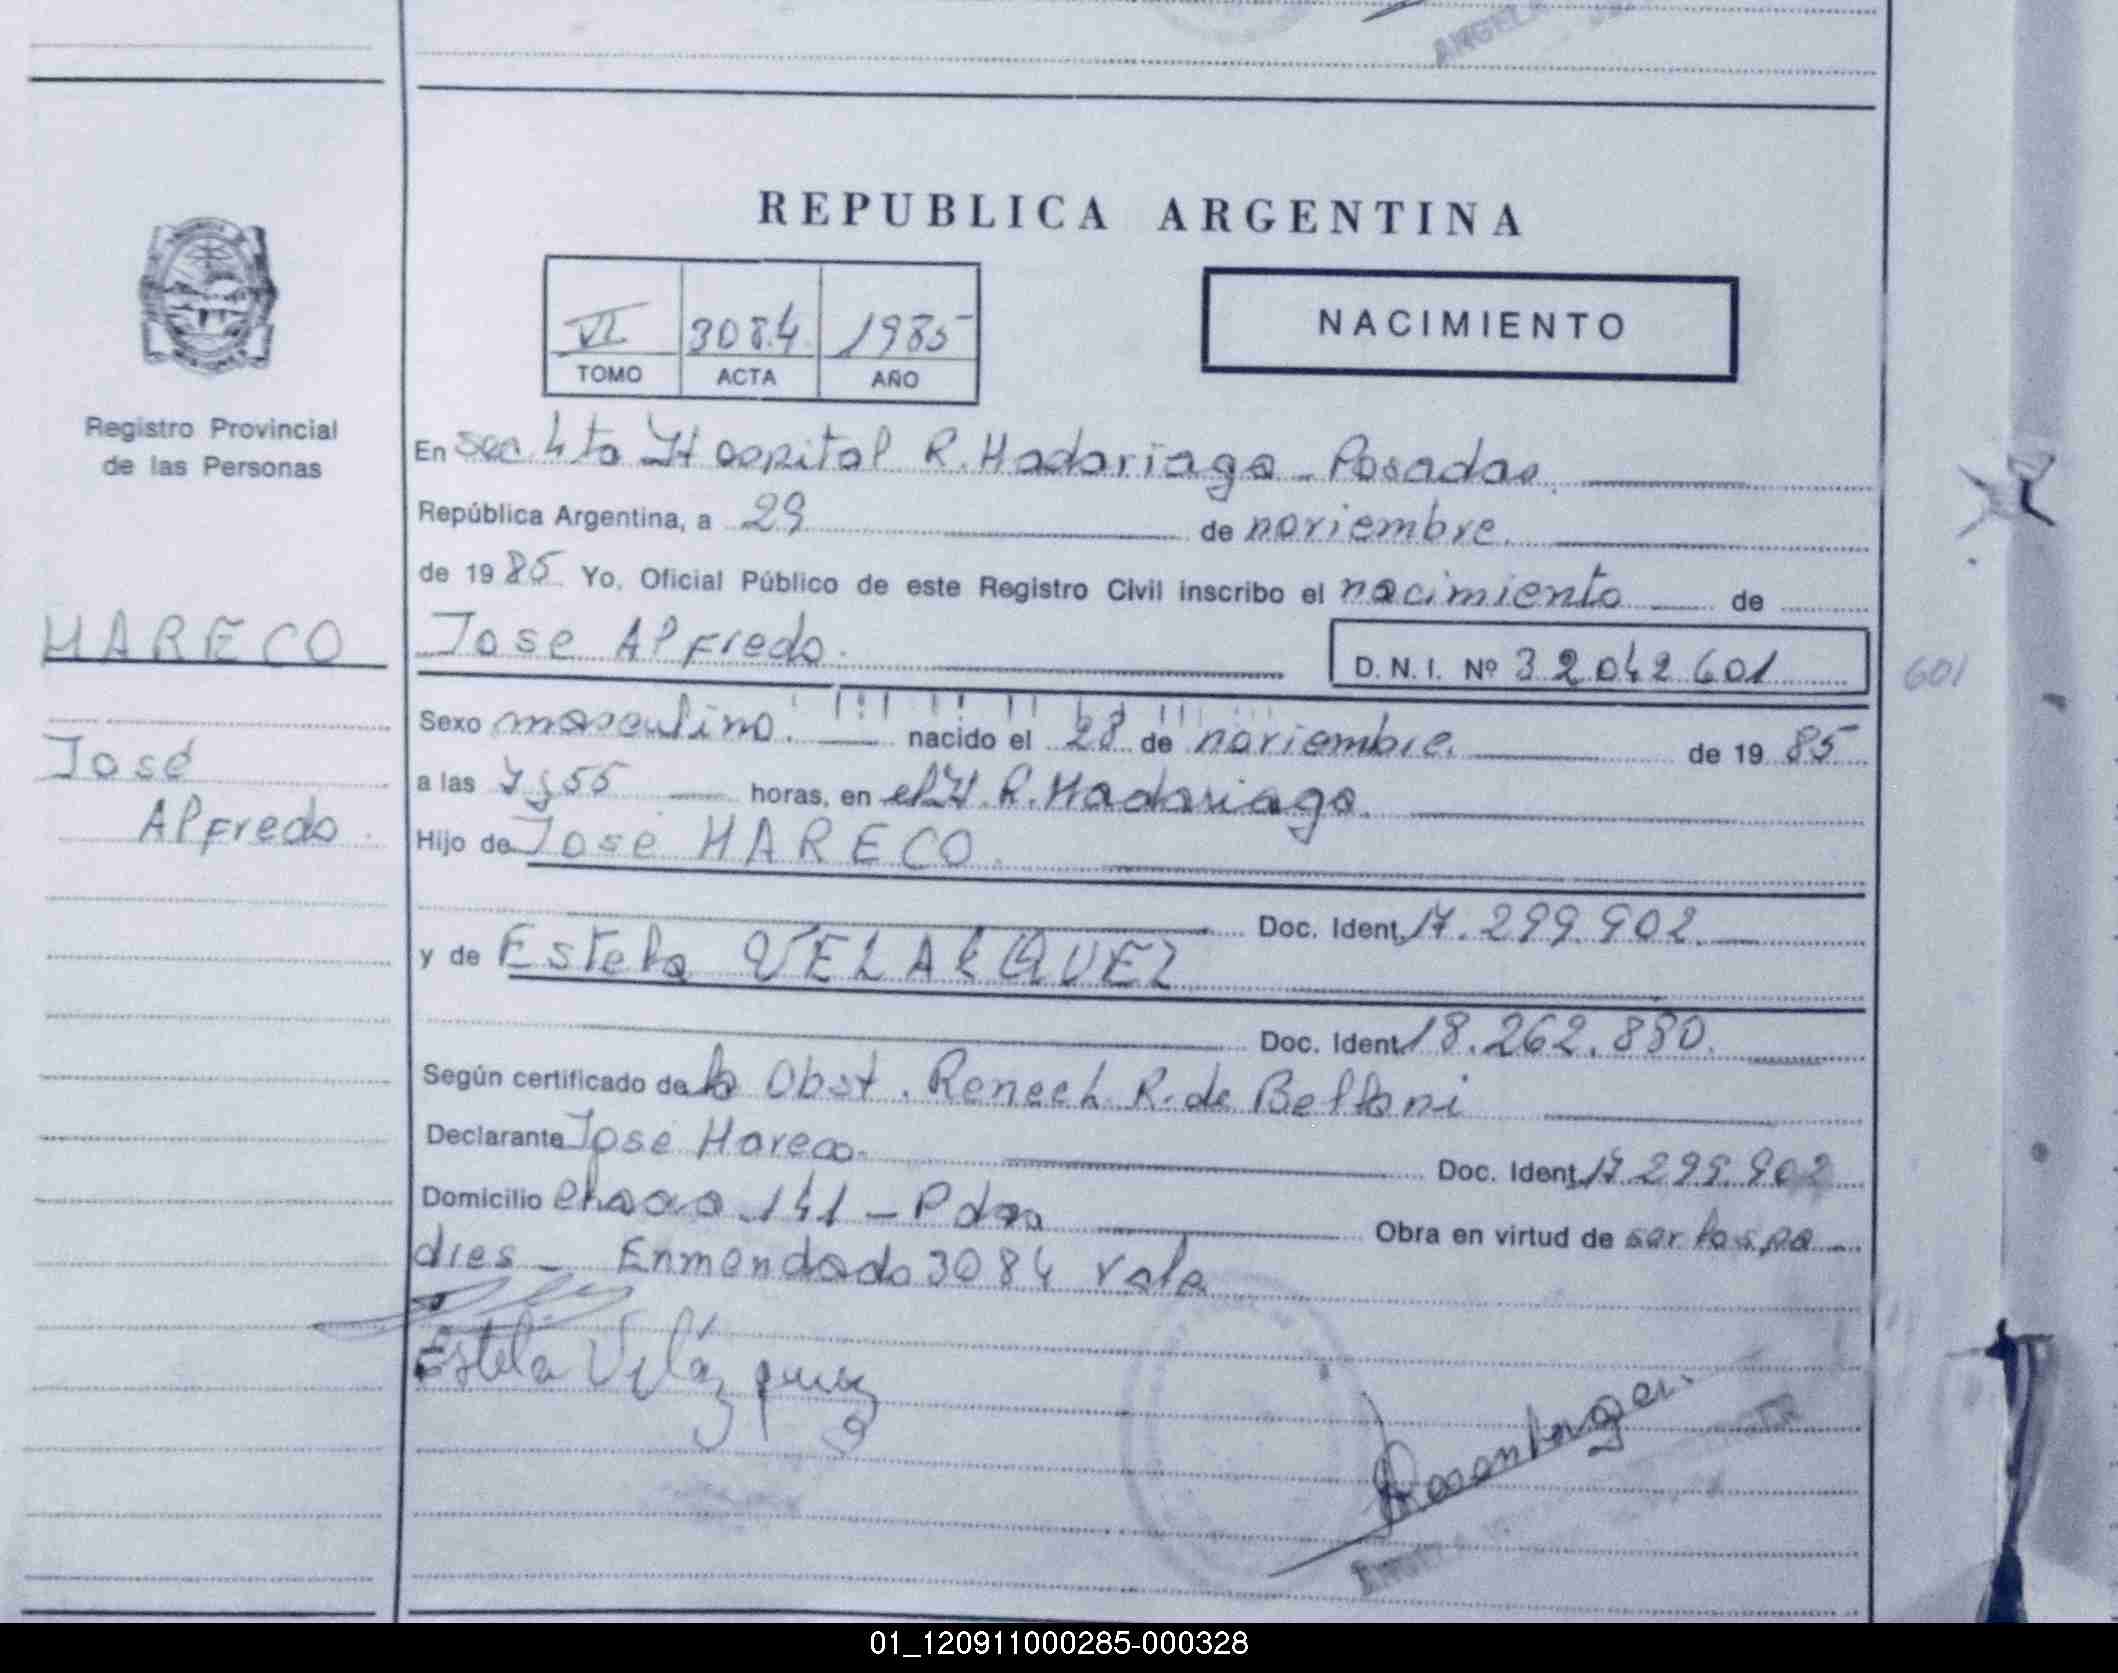 ANGELA
REPUBLICA ARGENTINA
VI 3084 1985
TOMO ACTA AÑO
NACIMIENTO
Registro Provincial
de las Personas
HARECO
José
Alfredo
En Sec. 4ta Hospital R. Madariaga - Posadas.
República Argentina, a 29 de noviembre.
de 1985 Yo, Oficial Público de este Registro Civil inscribo el nacimiento de
Jose Alfredo. D. N. I. Nº 32042601
601
Sexo masculino. nacido el 28 de noviembre. de 19 85
a las 7 y 55 horas, en el H. R. Madariaga.
Hijo de José HARECO.
Doc. Ident. 17.299.902.
y de Estela VELAZQUEZ
Doc. Ident. 18.262.880.
Según certificado de la Obst. R. de Belloni
Declarante José Hareco. Doc. Ident. 17.299.902
Domicilio Chaco 141 - Pdas Obra en virtud de ser los pa
dres - Enmendado 3084 Vale
Estela Velázquez
01_120911000285-000328